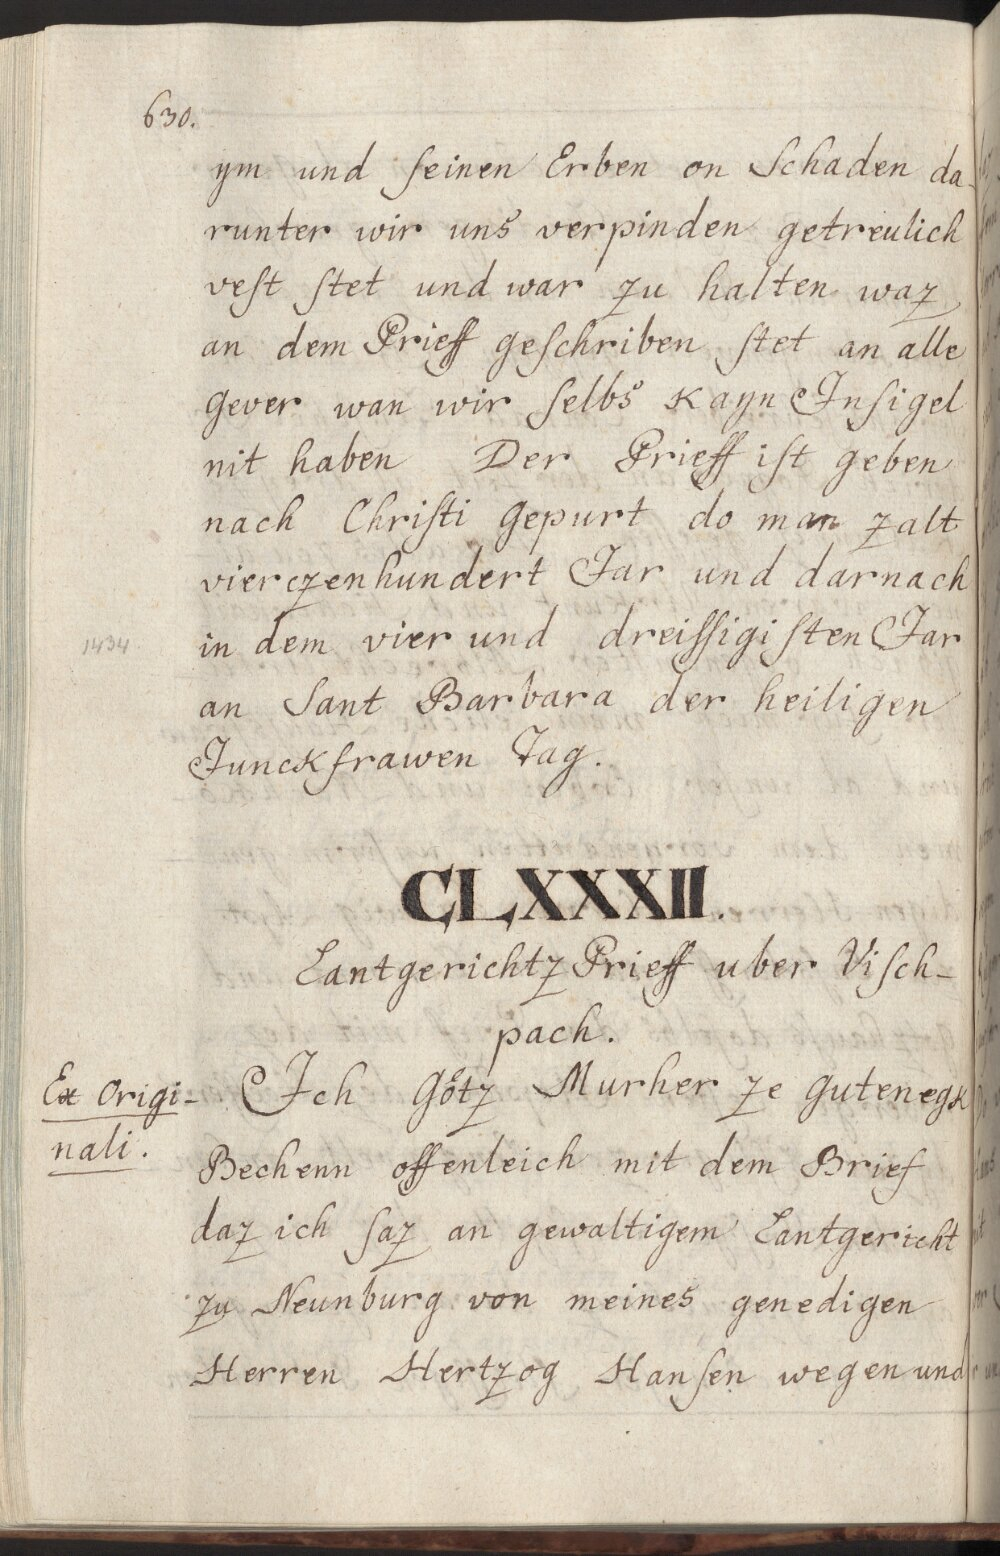 630.
ym und seinen Erben on Schaden da-
runter wir uns verpinden getreulich
vest stet und war zu halten waz
an dem Prieff geschriben stet an alle
gever wan wir selbs kayn Insigel
nit haben Der Prieff ist geben
nach Christi gepurt do man zalt
vierczenhundert Jar und darnach
1434
in dem vier und dreissigisten Jar
an Sant Barbara der heiligen
Junckfrawen Tag.
CLXXXII.
Lantgerichtz Prieff uber Visch-
pach.
Ex Origi-
nali.
Ich Götz Murher ze Gutenegk
Bechenn offenleich mit dem Brief
daz ich saz an gewaltigem Lantgericht
zu Neunburg von meines genedigen
Herren Hertzog Hansen wegen und